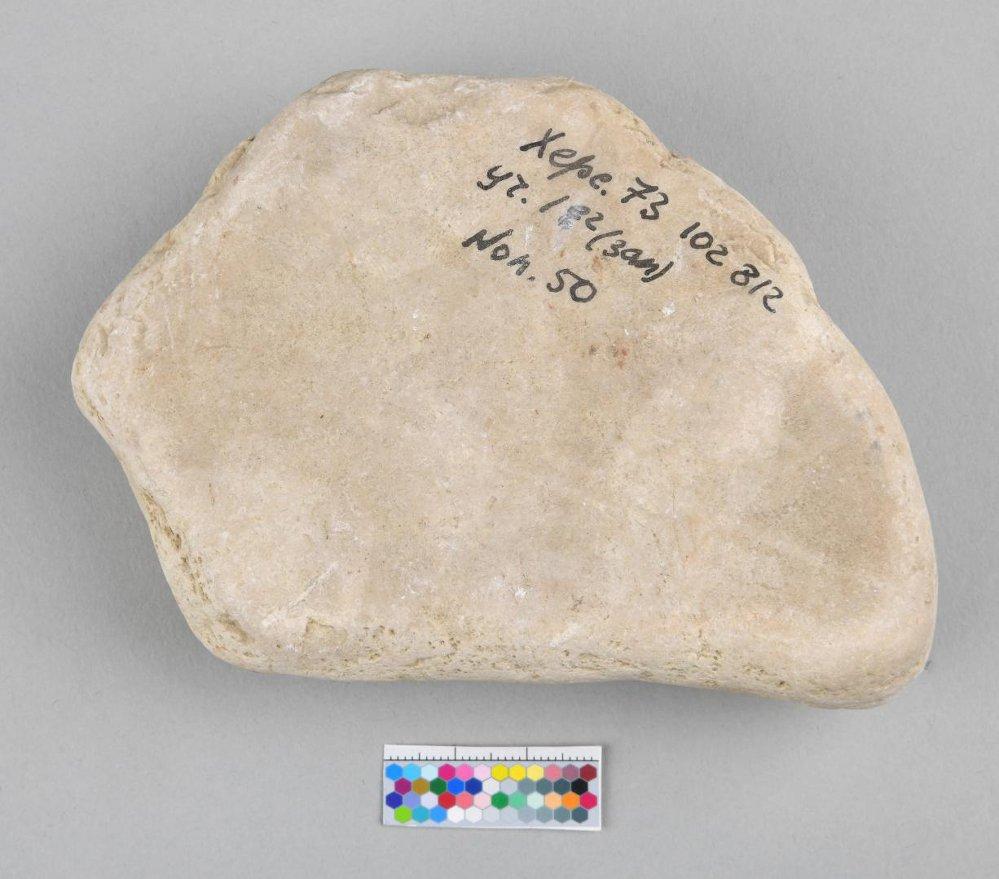 Херс. 73 102 812
уч. 1 (зап)
Пол. 50